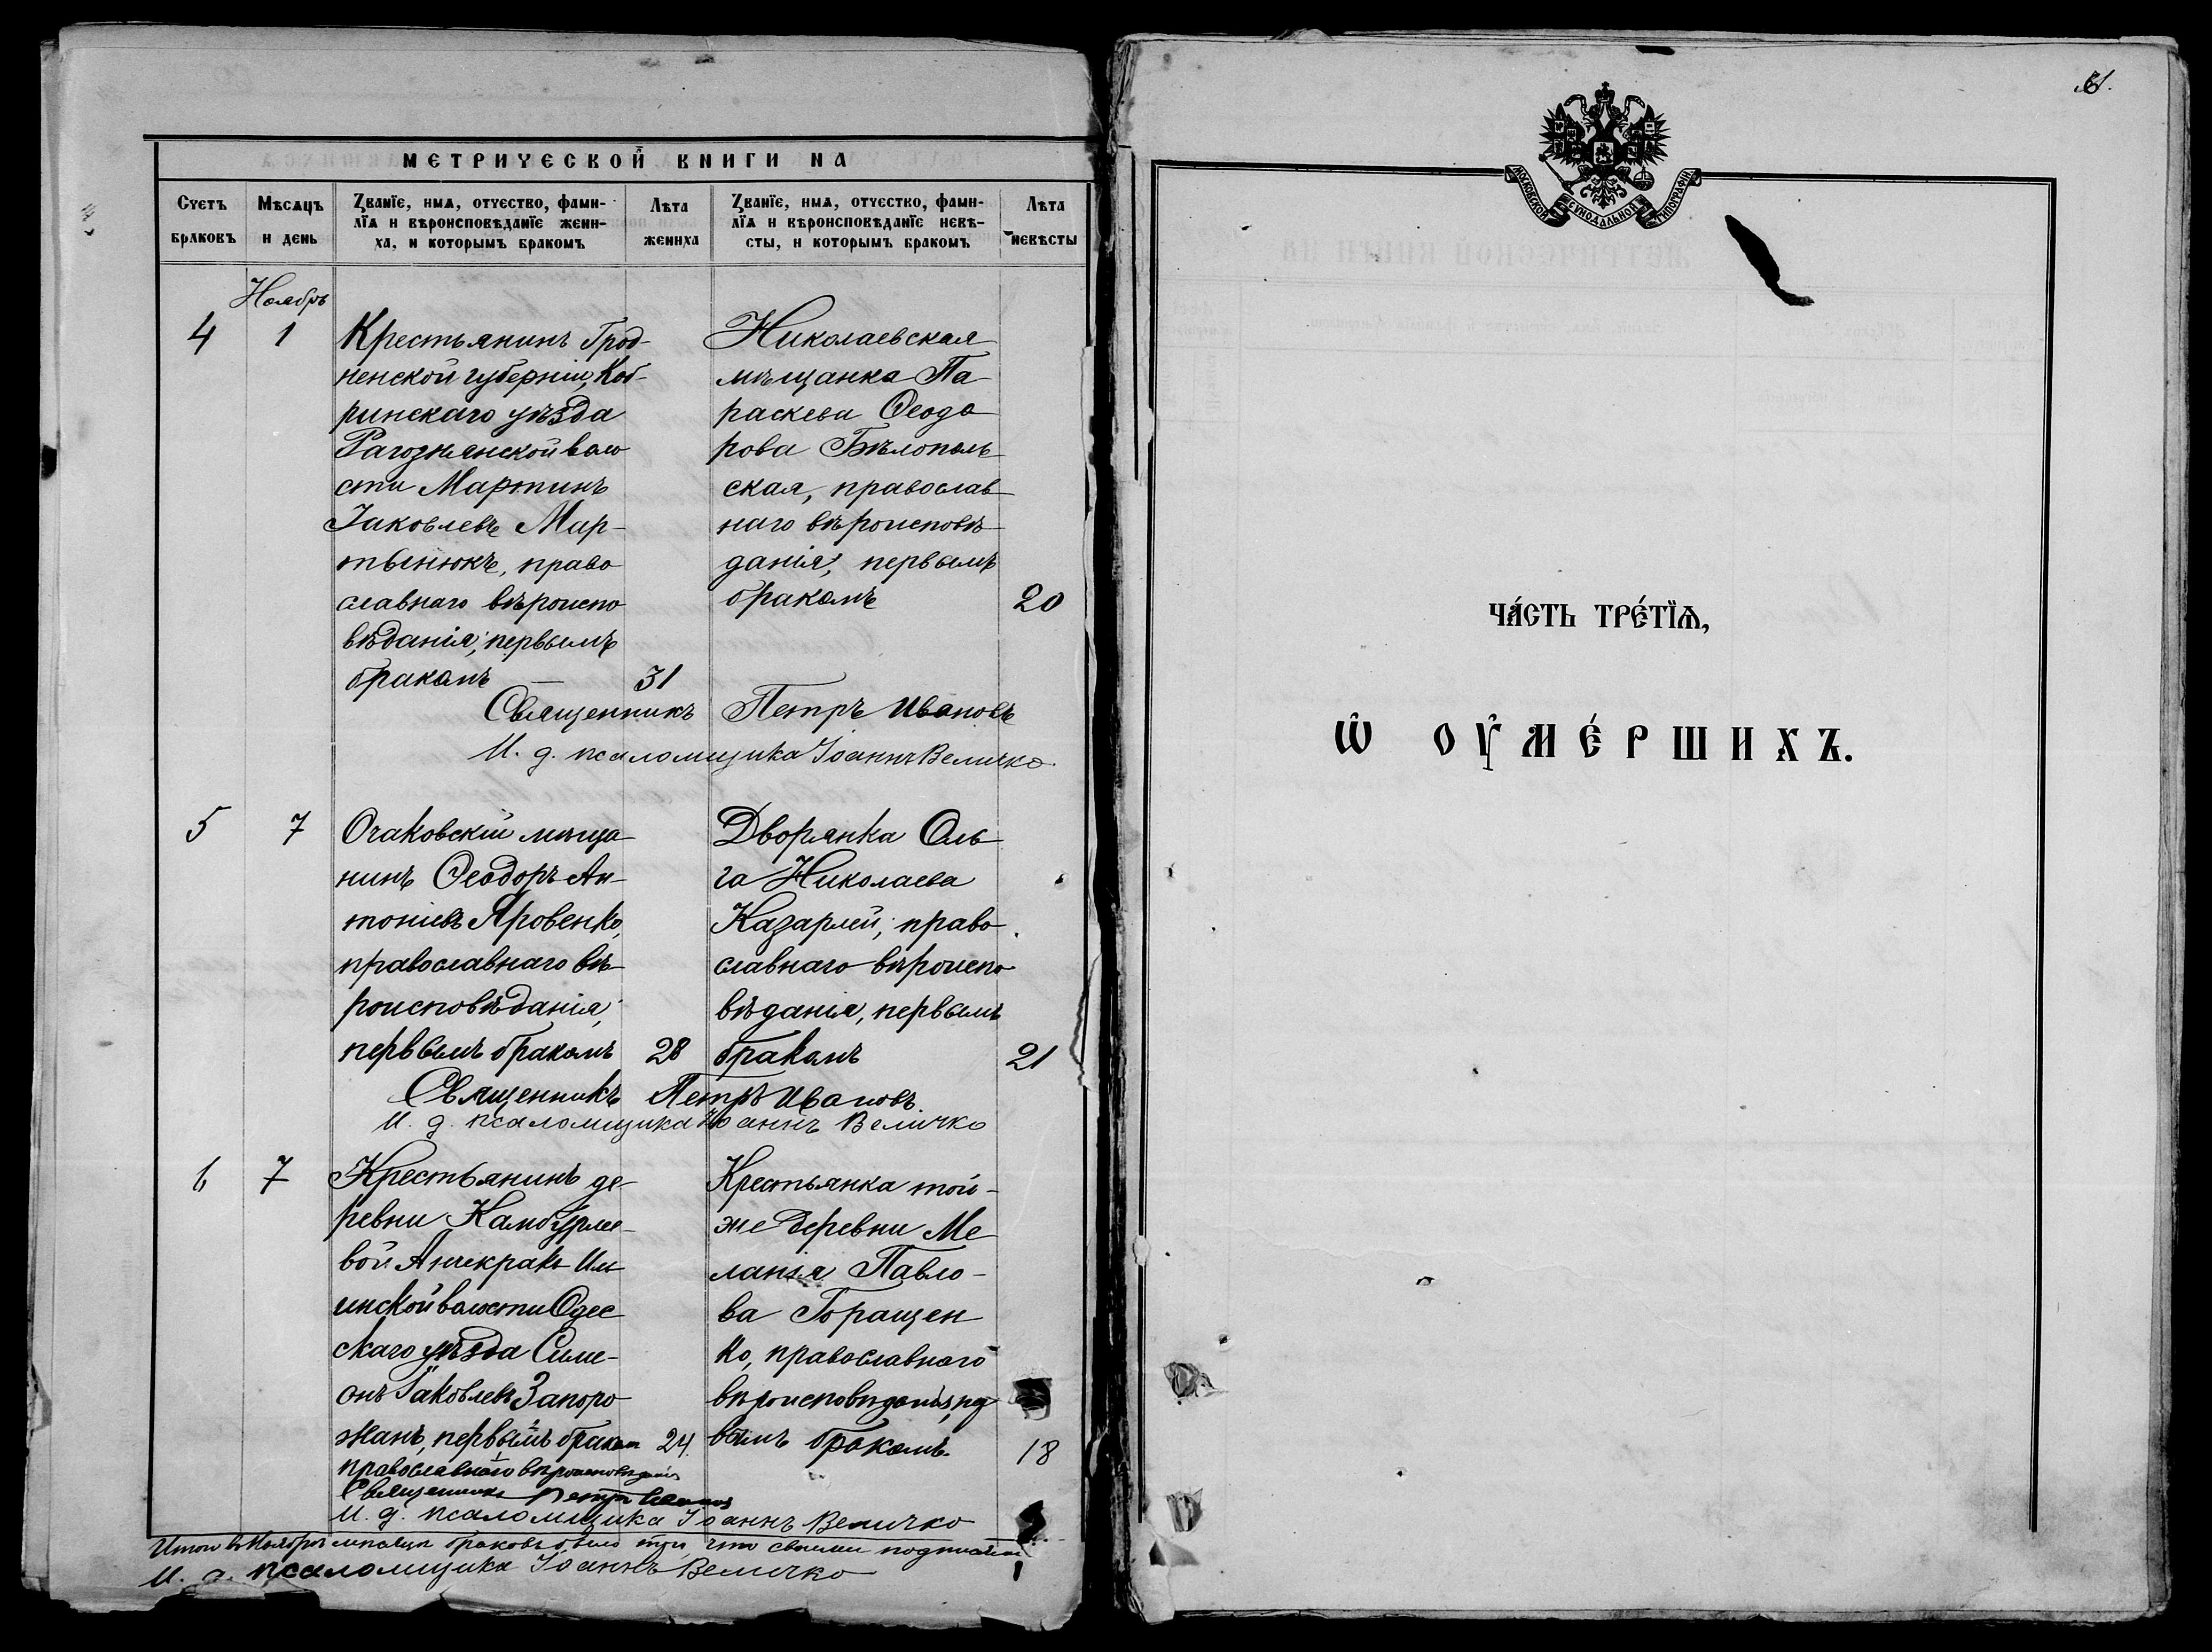 МЕТРИЧЕСКОЙ КНИГИ НА
Счетъ браковъ
Мѣсяцъ и день
Званїе, имя, отчество, фами-
лїя и вѣроисповѣданїе жени-
ха, и которымъ бракомъ
Лѣта жениха
Званїе, имя, отчество, фами-
лїя и вѣроисповѣданїе невѣ-
сты, и которымъ бракомъ
Лѣта невѣсты
Ноябрь
4 1
Крестьянинъ Грод-
ненской губерніи, Коб-
ринскаго уѣзда
Рагознянской воло
сти Мартинъ
Іаковлевъ Мар-
тынюкъ, право
славнаго вѣроиспо
вѣданія; первымъ
бракомъ — 31
Николаевская
мѣщанка Па-
раскева Ѳеодо
рова Бѣлополь
ская, православ
наго вѣроисповѣ-
данія, первымъ
бракомъ 20
Священникъ Петръ Ивановъ
И. д. псаломщика Іоаннъ Величко.
5 7
Очаковскій мѣща
нинъ Ѳеодоръ Ан-
тоніевъ Яровенко,
православнаго вѣ-
роисповѣданія;
первымъ бракомъ 28
Дворянка Оль
га Николаева
Казарлей; право
славнаго вѣроиспо
вѣданія, первымъ
бракомъ 21
Священникъ Петръ Ивановъ.
И. д. псаломщика Іоаннъ Величко
6 7
Крестьянинъ де-
ревни Камбурлее-
вой Анчекракъ Иль
инской волости Одес
скаго уѣзда Симе-
онъ Іаковлевъ Запоро
жанъ, первымъ бракомъ 24.
православнаго вѣроисповѣданія
Крестьянка той-
же деревни Ме
ланія Павло-
ва Горащен
ко, православнаго
вѣроисповѣданія, пер
вымъ бракомъ. 18
Священникъ Петръ Ивановъ
И. д. псаломщика Іоаннъ Величко
Итого въ Ноябрѣ мѣсяцѣ браковъ было три, что своими подписями
И. д. псаломщика Іоаннъ Величко
61.
МОСКОВСКОЙ СѴНОДАЛЬНОЙ ТИПОГРАФІИ
ЧА́СТЬ ТРЕ́ТЇѦ,
Ѡ҆ ОУ҆МЕ́РШИХЪ.